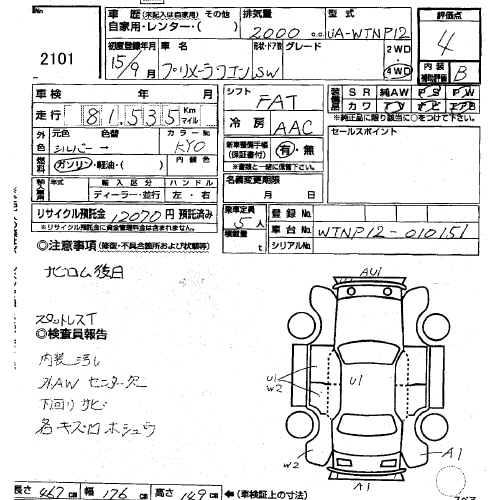 車 歴 (未記入は自家用) その他 排気量 型 式 評価点
自家用・レンター・( ) 2000 c.c. UA-WTNP12 4
2101
初度登録年月 車 名 形状・ドア数 グレード 2WD
15/9月 プリメーラワゴン SW 4WD 内装 補助評価 B
車検 年 月
走行 81,535 Km マイル
シフト FAT
装備品 SR 純AW PS PW
カワ TV ナビ エアB
※純正品に限り○をつけて下さい。
外色 元色 色替 カラーNo
シルバー→ KY0
冷房 AAC
セールスポイント
燃料 ガソリン・軽油・( ) 内装色
新車整備手帳 (保証書付) 有・無
※書類と一緒に保管下さい。
輸入車 年式 輸入区分 ハンドル
ディーラー・並行 左・右
名義変更期限
月 日
リサイクル預託金 12070円 預託済み
※リサイクル預託金に資金管理料金は含まれません。
乗車定員 5人
積載量 t
登録No.
車台No. WTNP12-010151
シリアルNo.
◎注意事項 (修復・不具合箇所および状態等)
ナビロム後日
スペットレスT
◎検査員報告
内装汚れ
外AW センター欠
下回りサビ
各キズ凹ホシュウ
AU1
U1
W2
U1
W2
A1
A1
長さ 467cm 幅 176cm 高さ 149cm ←(車検証上の寸法)